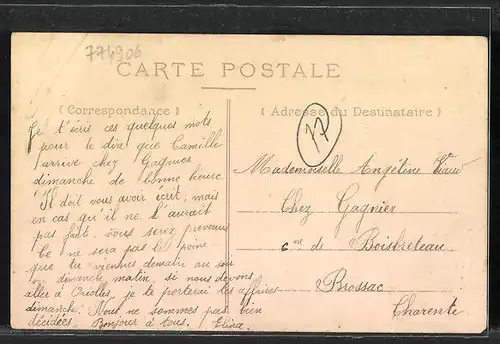 774906
CARTE POSTALE
(Correspondance)
Je t'écris ces quelques mots
pour te dire que Camille
arrive chez Gagnier
dimanche de bonne heure
Il doit vous avoir écrit, mais
en cas qu'il ne l'aurait
pas fait, vous serez prévenus
Ce ne sera pas la peine
que tu viennes demain au soir
dimanche matin, si nous devons
aller à Oriolles, je te porterai tes affaires
dimanche. Nous ne sommes pas bien
décidées. Bonjour à tous. Elina.
(Adresse du Destinataire)
17
Mademoiselle Angéline
Chez Gagnier
cne de Boisbreteau
Brossac
Charente